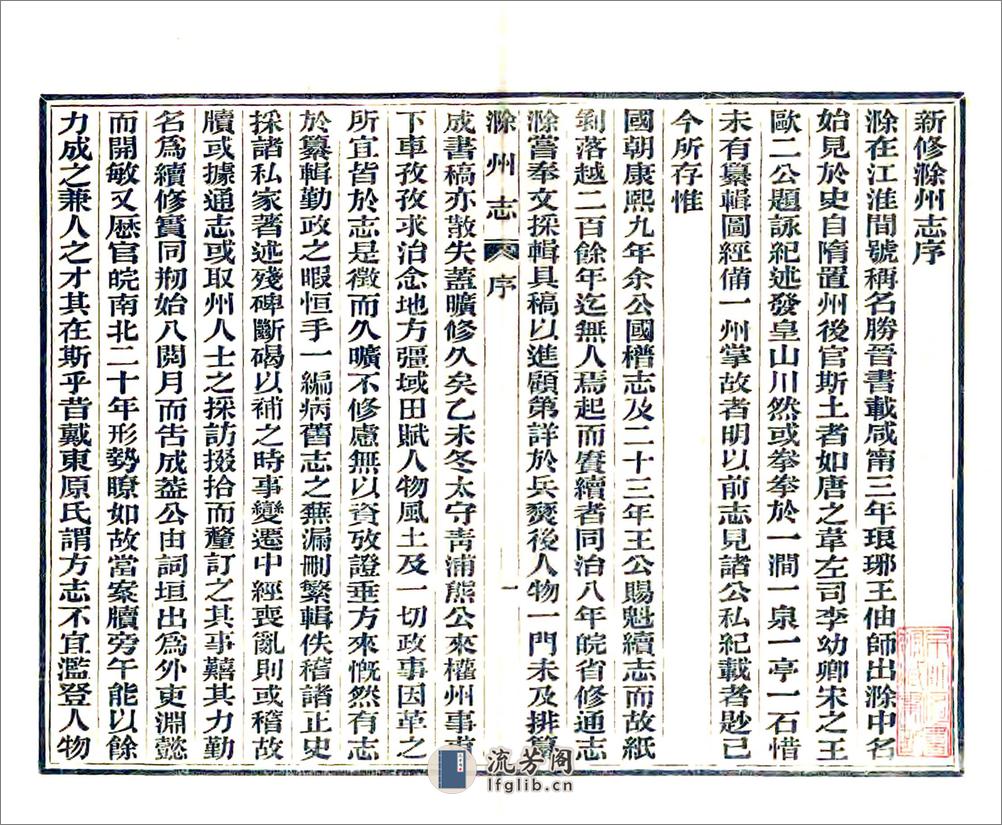 新修滁州志序
滁在江淮間號稱名勝晉書載咸甯三年琅琊王伷師出滁中名
始見於史自隋置州後官斯土者如唐之韋左司李幼卿宋之王
歐二公題詠紀述發皇山川然或拳拳於一澗一泉一亭一石惜
未有纂輯圖經備一州掌故者明以前志見諸公私紀載者尠已
今所存惟
國朝康熙九年余公國㯶志及二十三年王公賜魁續志而故紙
剝落越二百餘年迄無人焉起而賡續者同治八年皖省修通志
滁嘗奉文採輯具稿以進顧第詳於兵燹後人物一門未及排纂
滁州志 序 一
成書稿亦散失蓋曠修久矣乙未冬太守靑浦熊公來權州事甫
下車孜孜求治念地方彊域田賦人物風土及一切政事因革之
所宜皆於志是徵而久曠不修慮無以資攷證垂方來慨然有志
於纂輯勤政之暇恒手一編病舊志之蕪漏刪繁輯佚稽諸正史
採諸私家著述殘碑斷碣以補之時事變遷中經喪亂則或稽故
牘或據通志或取州人士之採訪掇拾而釐訂之其事囏其力勤
名爲續修實同剏始八閱月而告成葢公由詞垣出爲外吏淵懿
而開敏又厯官皖南北二十年形勢瞭如故當案牘旁午能以餘
力成之兼人之才其在斯乎昔戴東原氏謂方志不宜濫登人物
流芳阁
lfglib.cn